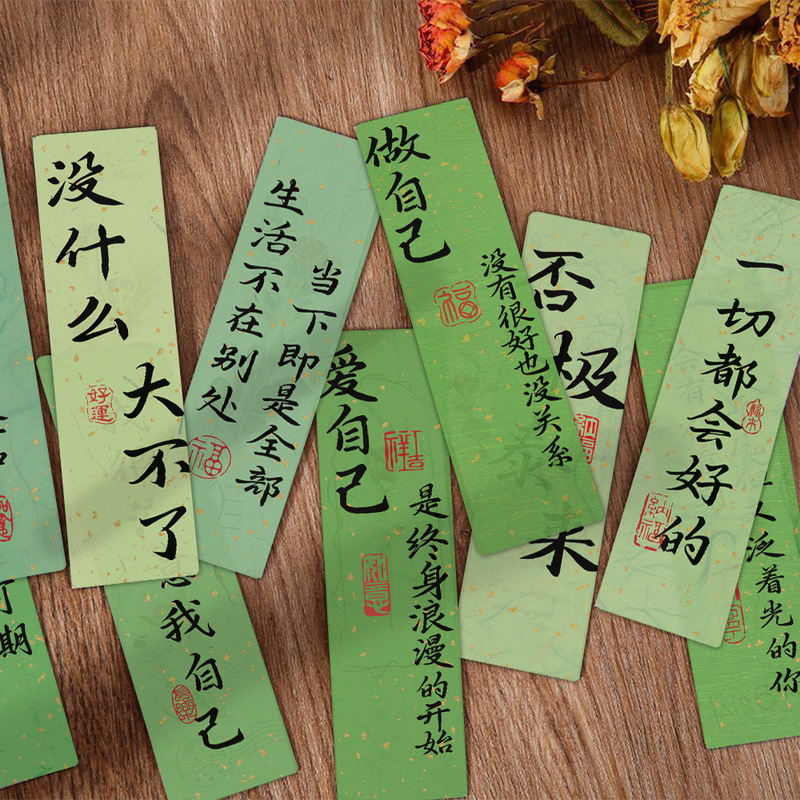 没什么
大不了
好運
生活不在别处
当下即是全部
福
做自己
没有很好也没关系
福
爱自己
是终身浪漫的开始
祥吉
否极
来
一切都会好的
我自己
泛着光的你
期